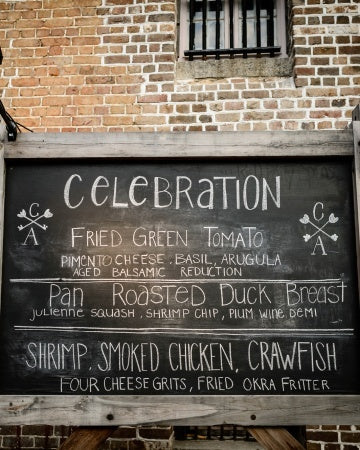 CELEBRATION
C
A
C
A
FRIED GREEN TOMATO
PIMENTO CHEESE, BASIL, ARUGULA
AGED BALSAMIC REDUCTION
Pan Roasted Duck Breast
julienne squash, shrimp chip, plum wine demi
SHRIMP, SMOKED CHICKEN, CRAWFISH
FOUR CHEESE GRITS, FRIED OKRA FRITTER